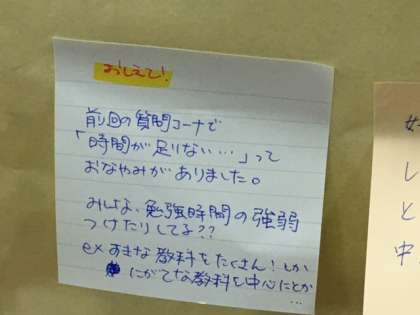 おしえて!
前回の質問コーナで
「時間が足りない…」って
おなやみがありました。
みんな、勉強時間の強弱
つけたりしてる??
exすきな教科をたくさん!とか
にがてな教科を中心にとか
…
し
と
中